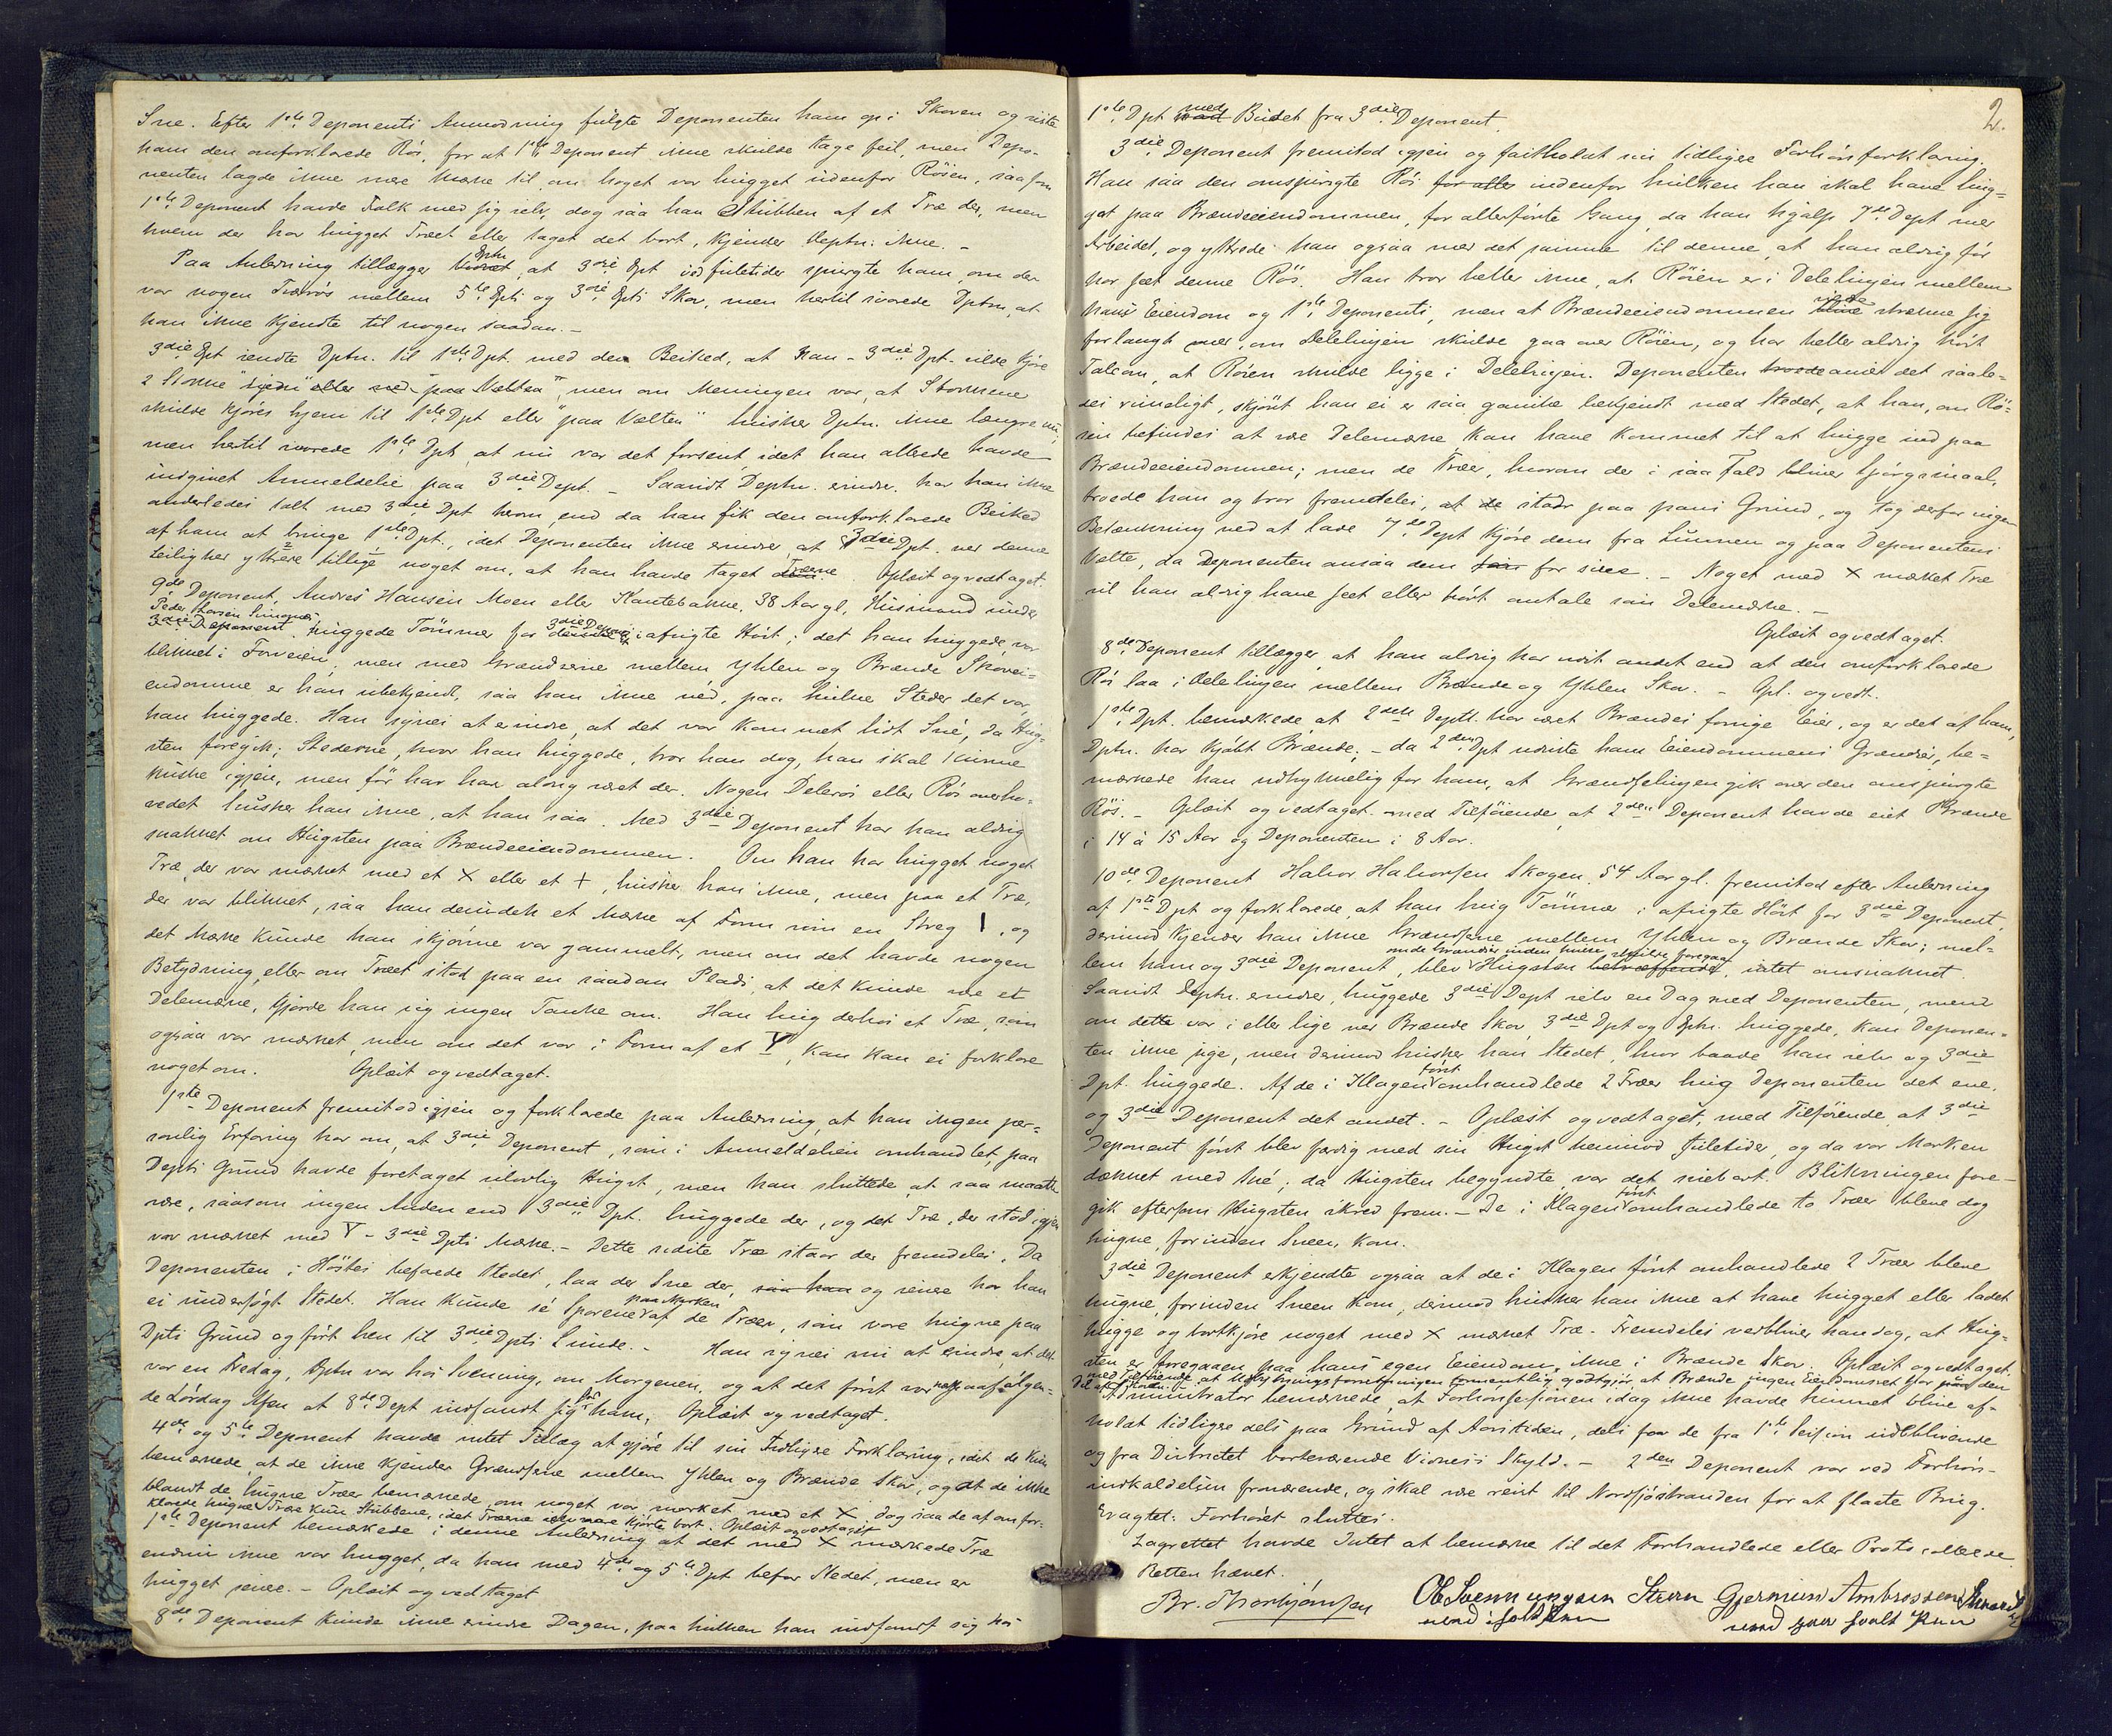 Sne. Efter 1ste Deponents Anmodning fulgte Deponenten ham op i Skoven og viste
ham den omforklarede Rös, for at 1ste Deponent ikke skulde tage feil, men Depo-
nenten lagde ikke nøie Mærke til, om noget var hugget udenfor Rösen, saasom
1ste Deponent havde Folk med sig selv, dog saa han Stubben af et Træ der, men
hvem der har hugget Træet eller taget det bort, kjender Deptn. ikke. –
Paa Anledning tillægger Dptn, at 3die Dpt ved Juletider spurgte ham, om der
var nogen Trærös mellem 5te Dpts og 3die Dpts Skov, men hertil svarede Dptn, at
han ikke kjendte til nogen saadan. –
3die Dpt sendte Dptn. til 1ste Dpt. med den Besked, at Han – 3die Dpt – vilde kjöre
2 Stokke "hjem" eller ned "paa Vælten", men om Meningen var, at Stokkene
skulde kjöres hjem til 1ste Dpt eller "paa Vælten" husker Dptn. ikke længere nu,
men hertil svarede 1ste Dpt, at nu var det forsent, idet han allerede havde
indgivet Anmeldelse paa 3die Dept. – Saavidt Deptn. erindrer, har han ikke
anderledes talt med 3die Dpt herom, end da han fik den omforklarede Besked
af ham at bringe 1ste Dpt., idet Deponenten ikke erindrer, at 3die Dpt. ved denne
Leilighed yttrede tillige noget om, at han havde taget Træerne Oplæst og vedtaget.
9de Deponent, Andres Hansen Moen eller Kantebakke, 38 Aar gl, Husmand under
Peder Larsen
3die Deponent huggede Tömmer for 3die Deponent i afvigte Höst; det han huggede, var
blinket i Forveien, men med Grændserne mellem Yhlen og Brænde Skovei-
endomme er han ubekjendt, saa han ikke véd, paa hvilke Steder det var,
han huggede. Han synes at erindre, at det var kommet lidt Sné, da Hug-
sten foregik; Stederne, hvor han huggede, tror han dog, han skal kunne
huske igjen, men för har han aldrig været der. Nogen Delerös eller Rös overho-
vedet husker han ikke, at han saa. Med 3die Deponent har han aldrig
snakket om Hugsten paa Brændeeiendommen. Om han har hugget noget
Træ, der var mærket med et X eller et +, husker han ikke, men paa et Træ,
der var blinket, saa han desuden et Mærke af Form som en Streg \, og
det Mærke kunde han skjönne var gammelt, men om det havde nogen
Betydning, eller om Træet stod paa en saadan Plads, at det kunde være et
Delemærke, gjorde han sig ingen Tanke om. Han hug derhos et Træ, som
ogsaa var mærket, men om det var i Form af et V, kan han ei forklare
noget om. Oplæst og vedtaget.
1ste Deponent fremstod igjen og forklarede paa Anledning, at han ingen per-
sonlig Erfaring har om, at 3die Deponent, som i Anmeldelsen omhandlet, paa
Depts Grund havde foretaget ulovlig Hugst, men han sluttede, at saa maatte
være, saasom ingen Anden end 3die Dpt. huggede der, og det Træ, der stod igjen
var mærket med V – 3die Dpts Mærke. – Dette sidste Træ staar der fremdeles. Da
Deponenten i Höstes befoer Stedet, laa der Sne der, saa han og senere har han
ei undersögt Stedet. Han kunde sé Sporene paa Marken af de Træer, som vare hugne paa
Dpts Grund og fört hen til 3die Dpts Lunne. – Han synes nu at erindre, at det
var en Fredag, Dptn var hos Svenning, om Morgenen, og at det först var næst paafölgen-
de Lördag Aften at 8de Dept indfandt sig hos ham. Oplæst og vedtaget.
4de og 5te Deponent havde intet Tillæg at gjöre til sin Tidligere Forklaring, idet de kun
bemærkede, at de ikke kjender Grændserne mellem Yhlen og Brænde Skov, og at de ikke
blandt de hugne Træer bemærkede, om noget var mærket med et X, dog saa de af omfor-
klarede hugne Træer kun Stubbene, idet Træerne selv vare kjörte bort. Oplæst og vedtaget
1ste Deponent bemærkede i denne Anledning at det med X mærkede Træ
endnu ikke var hugget, da han med 4de og 5te Dpt befor Stedet, men er
hugget senere. – Oplæst og vedtaget
8de Deponent kunde ikke erindre Dagen, paa hvilken han indfandt sig hos
2.
1ste Dpt med Budet fra 3die Deponent.
3die Deponent fremstod igjen og fastholdt sin tidligere Forhörsforklaring.
Han saa den omspurgte Rös for aller indenfor hvilken han skal have hug-
get paa Brændeeiendommen, for allerförste Gang, da han hjalp 7de Dept med
Arbeidet, og yttrede han ogsaa med det samme til denne, at han aldrig för
har seet denne Rös. Han tror heller ikke, at Rösen er i Delelinjen mellem
hans Eiendom og 1ste Deponents, men at Brændeeiendommen vilde strække sig
forlangt ned, om Delelinjen skulde gaa over Rösen, og har heller aldrig hört
Tale om, at Rösen skulde ligge i Delelinjen. Deponenten troede anser det saale-
des rimeligt, skjönt han ei er saa ganske bekjendt med Stedet, at han, om Rö-
sen befindes at være Delemærke kan have kommet til at hugge ind paa
Brændeeiendommen; men de Træer, hvorom der i saa Fald bliver Spörgsmaal,
troede han og tror fremdeles, at de stode paa hans Grund, og tog derfor ingen
Betænkning ved at lade 7de Dept kjöre dem fra Lunnen og paa Deponentens
Vælte, da Deponenten ansaa dem som for sine. – Noget med X mærket Træ
vil han aldrig have seet eller hört omtale som Delemærke. –
Oplæst og vedtaget.
8de Deponent tillægger, at han aldrig har vidst andet end at den omforklarede
Rös laa i Delelinjen mellem Brænde og Yhlen Skov. – Opl. og vedt.
1ste Dpt. bemærkede at 2den Deptt. har været Brændes forrige Eier, og er det af ham,
Dptn. har kjöbt Brænde; – da 2den Dpt udviste ham Eiendommens Grændser, be-
mærkede han udtrykkelig for ham, at Grændselinjen gik over den omspurgte
Rös. – Oplæst og vedtaget med Tilföiende, at 2den Deponent havde eiet Brænde
i 14 à 15 Aar og Deponenten i 8 Aar.
10de Deponent Halvor Halvorsen Skogen, 54 Aar gl. fremstod efter Anledning
af 1ste Dpt og forklarede, at han hug Tömmer i afvigte Höst for 3die Deponent,
derimod kjender han ikke Grændserne mellem Yhlen og Brænde Skov; mel-
lem ham og 3die Deponent, blev om de Grændser inden hvilke Hugsten skulde foregaa, intet omsnakket.
Saavidt Dptn. erindrer, huggede 3die Dept selv en Dag med Deponenten, mend
om dette var i eller lige ved Brænde Skov, 3die Dpt og Dptn. huggede, kan Deponen-
ten ikke sige, men derimod husker han Stedet, hvor baade han selv og 3die
Dpt. huggede. Af de i Klagen först omhandlede 2 Træer hug Deponenten det ene,
og 3die Deponent det andet. – Oplæst og vedtaget, med Tilföiende at 3die
Deponent först blev færdig med sin Hugst henimod Juletider, og da var Marken
dækket med Sné; da Hugsten begyndte, var det snebart. Blinkningen fore-
gik eftersom Hugsten skred frem. – De i Klagen först omhandlede to Træer bleve dog
hugne, forinden Sneen kom.
3die Deponent erkjendte ogsaa at de i Klagen först omhandlede 2 Træer bleve
hugne, forinden Sneen kom, derimod husker han ikke at have hugget eller ladet
hugge og bortkjöre noget med X mærket Træ. Fremdeles vedbliver han dog, at Hug-
sten er foregaaen paa hans egen Eiendom, ikke i Brænde Skov. Oplæst og vedtaget.
med Tilföiende at Udskiftningsforretningen formentlig godtgjör, at Brænde ingen Eiendomsret har paa den
Administrator bemærkede, at Forhörssessionen idag ikke havde kunnet blive af-
holdt tidligere dels paa Grund af Aarstiden, dels for de fra 1ste Session udeblivende
og fra Distriktet bortværende Vidners Skyld. – 2den Deponent var ved Forhörs-
indkaldelsen fraværende, og skal være reist til Nordfjöstranden for at flaate Brug.
Eragtet: Forhöret sluttes.
Lagrettet havde Intet at bemærke til det Forhandlede eller Protocollerede.
Retten hævet.
Br. Thorbjörnsen Ole Svennungsen Steen Gjermun Ambrossen
med i hold Pen med paa holt Pen